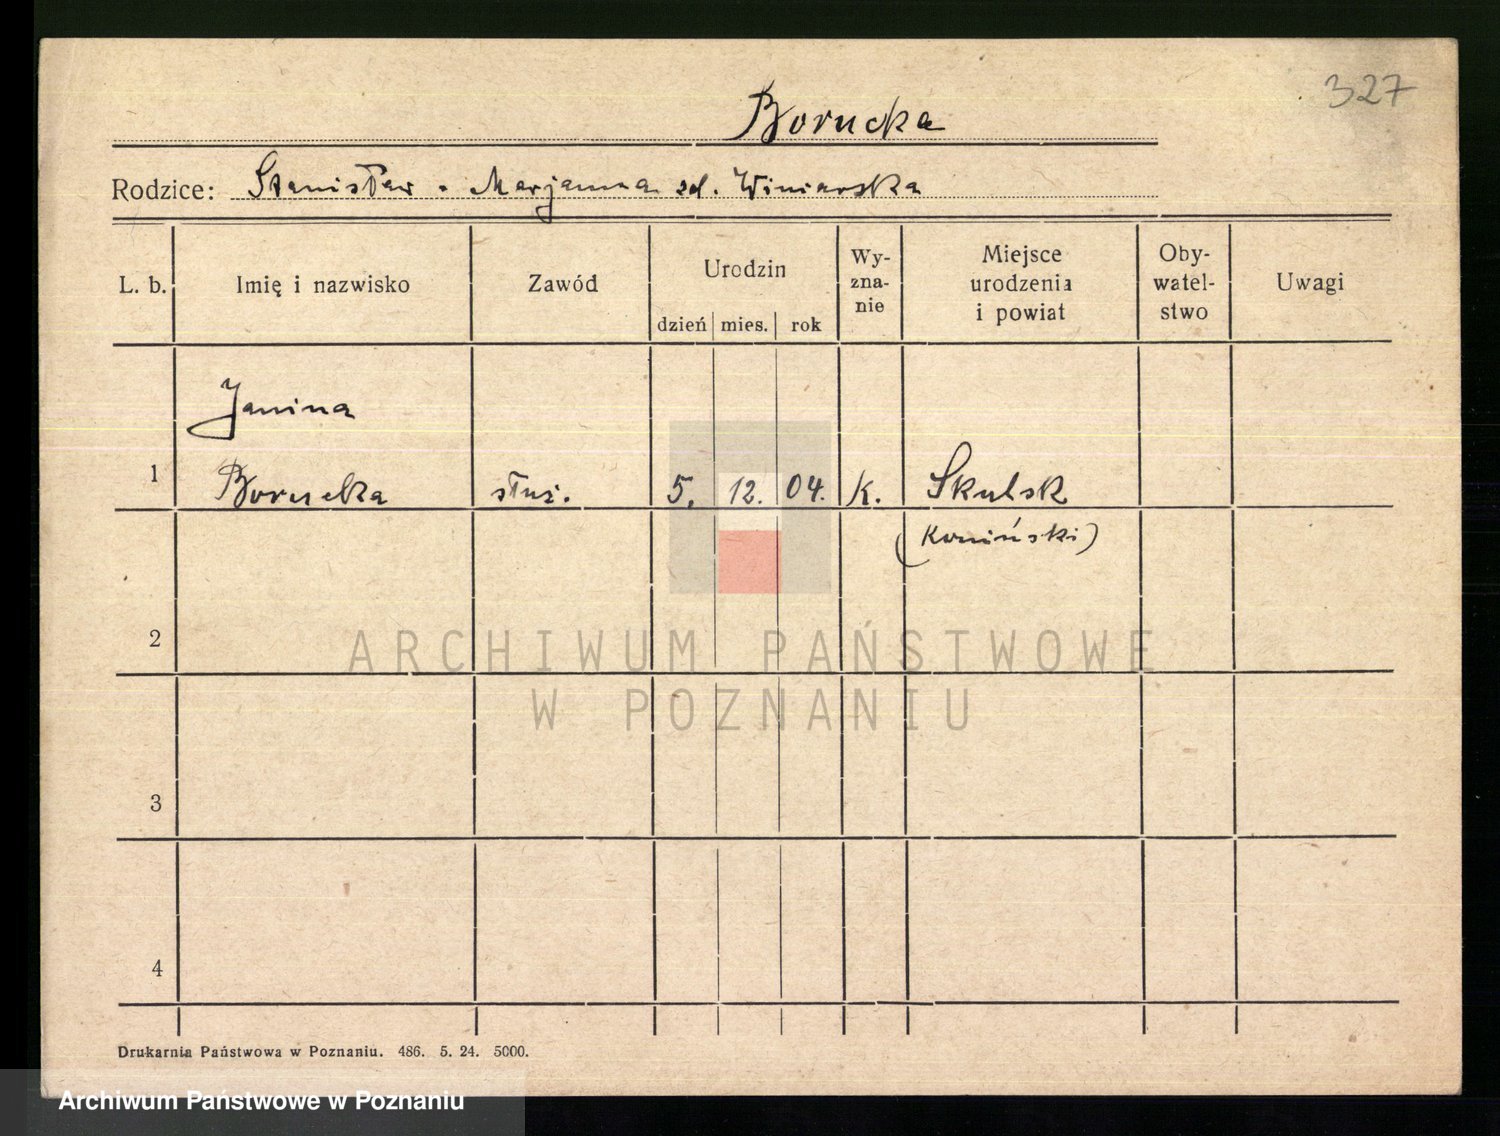 327
Borucka
Rodzice: Stanisław - Marjanna zd. Winiarska
L. b. Imię i nazwisko Zawód Urodzin dzień mies. rok Wy- zna- nie Miejsce urodzenia i powiat Oby- watel- stwo Uwagi
Janina
1 Borucka służ. 5. 12. 04. k. Skulsk
(Koniński)
2
ARCHIWUM PAŃSTWOWE
W POZNANIU
3
4
Drukarnia Państwowa w Poznaniu. 486. 5. 24. 5000.
Archiwum Państwowe w Poznaniu